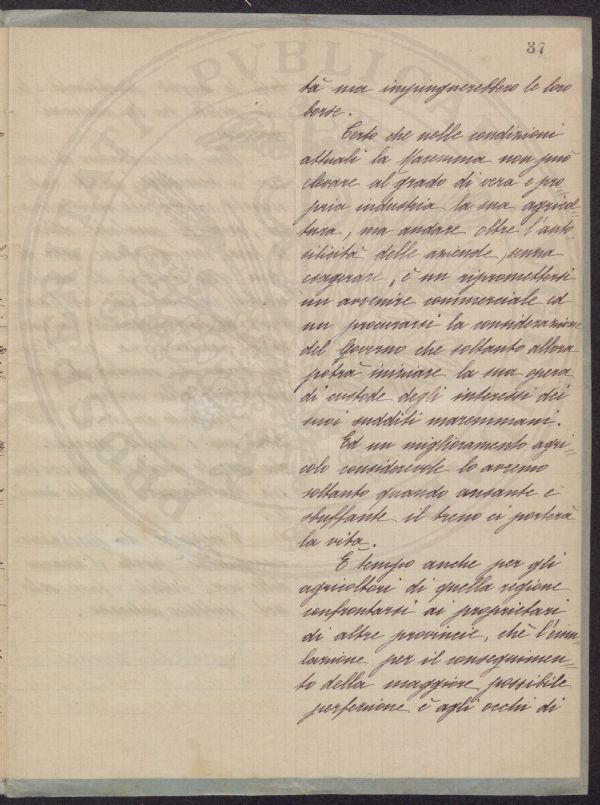 37
tà ma impinguerebbero le loro
borse.
Certo che nelle condizioni
attuali la Maremma non può
elevare al grado di vera e pro-
pria industria la sua agricol-
tura, ma andare oltre l'auto
citicità delle aziende, senza
esagerare, è un ripromettersi
un avvenire commerciale ed
un procurarsi la considerazione
del Governo che soltanto allora
potrà iniziare la sua opera
di custode degli interessi dei
suoi sudditi maremmani.
Ed un miglioramento agri-
colo considerevole lo avremo
soltanto quando ansante e
sbuffante il treno ci porterà
la vita.
È tempo anche per gli
agricoltori di quella regione
confrontarsi ai proprietari
di altre provincie, chè l'emu-
lazione per il conseguimen-
to della maggiore possibile
perfezione è agli occhi di